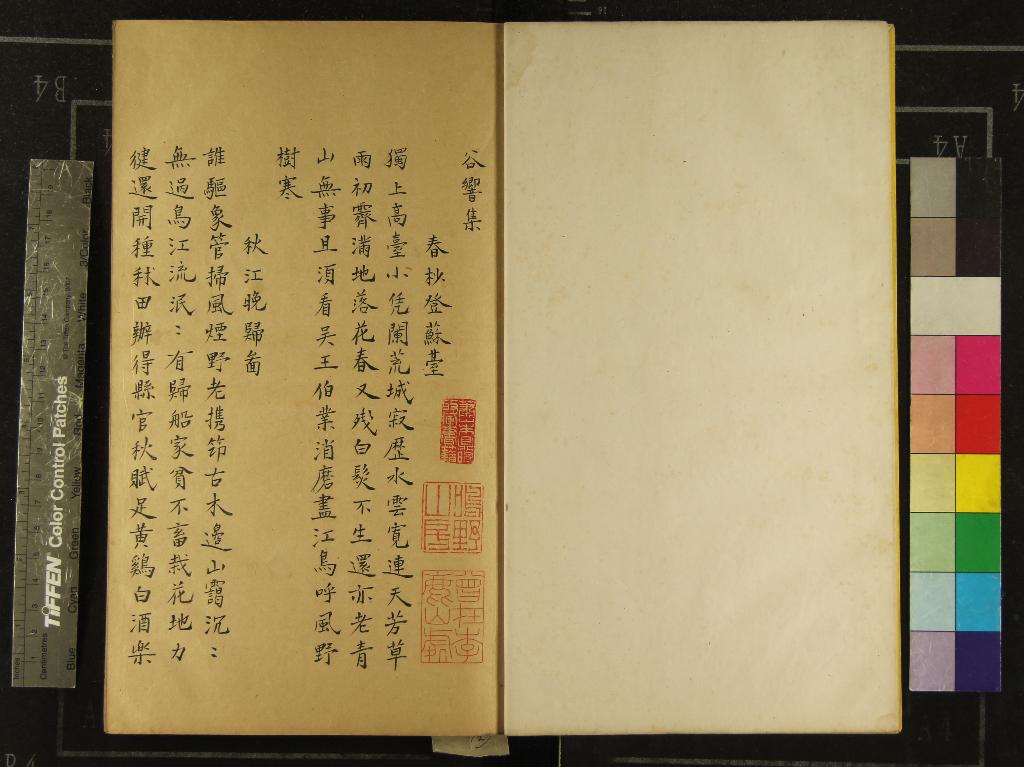 谷響集
春杪登蘇臺
獨上高臺小凭闌荒城寂歷水雲寬連天芳草
雨初霽滿地落花春又殘白髮不生還亦老青
山無事且須看吴王伯業消磨盡江鳥呼風野
樹寒
秋江晚歸啚
誰驅象管掃風煙野老携笻古木邊山靄沉〻
無過鳥江流泯〻有歸船家貧不畜栽花地力
健還開種秫田辦得縣官秋賦足黄鷄白酒樂
鴻野山房
曾在李鹿山處
TIFFEN Color Control Patches
Inches
Centimetres
Blue
Cyan
Green
Yellow
Red
Magenta
White
3/Color
Black
B4
A4